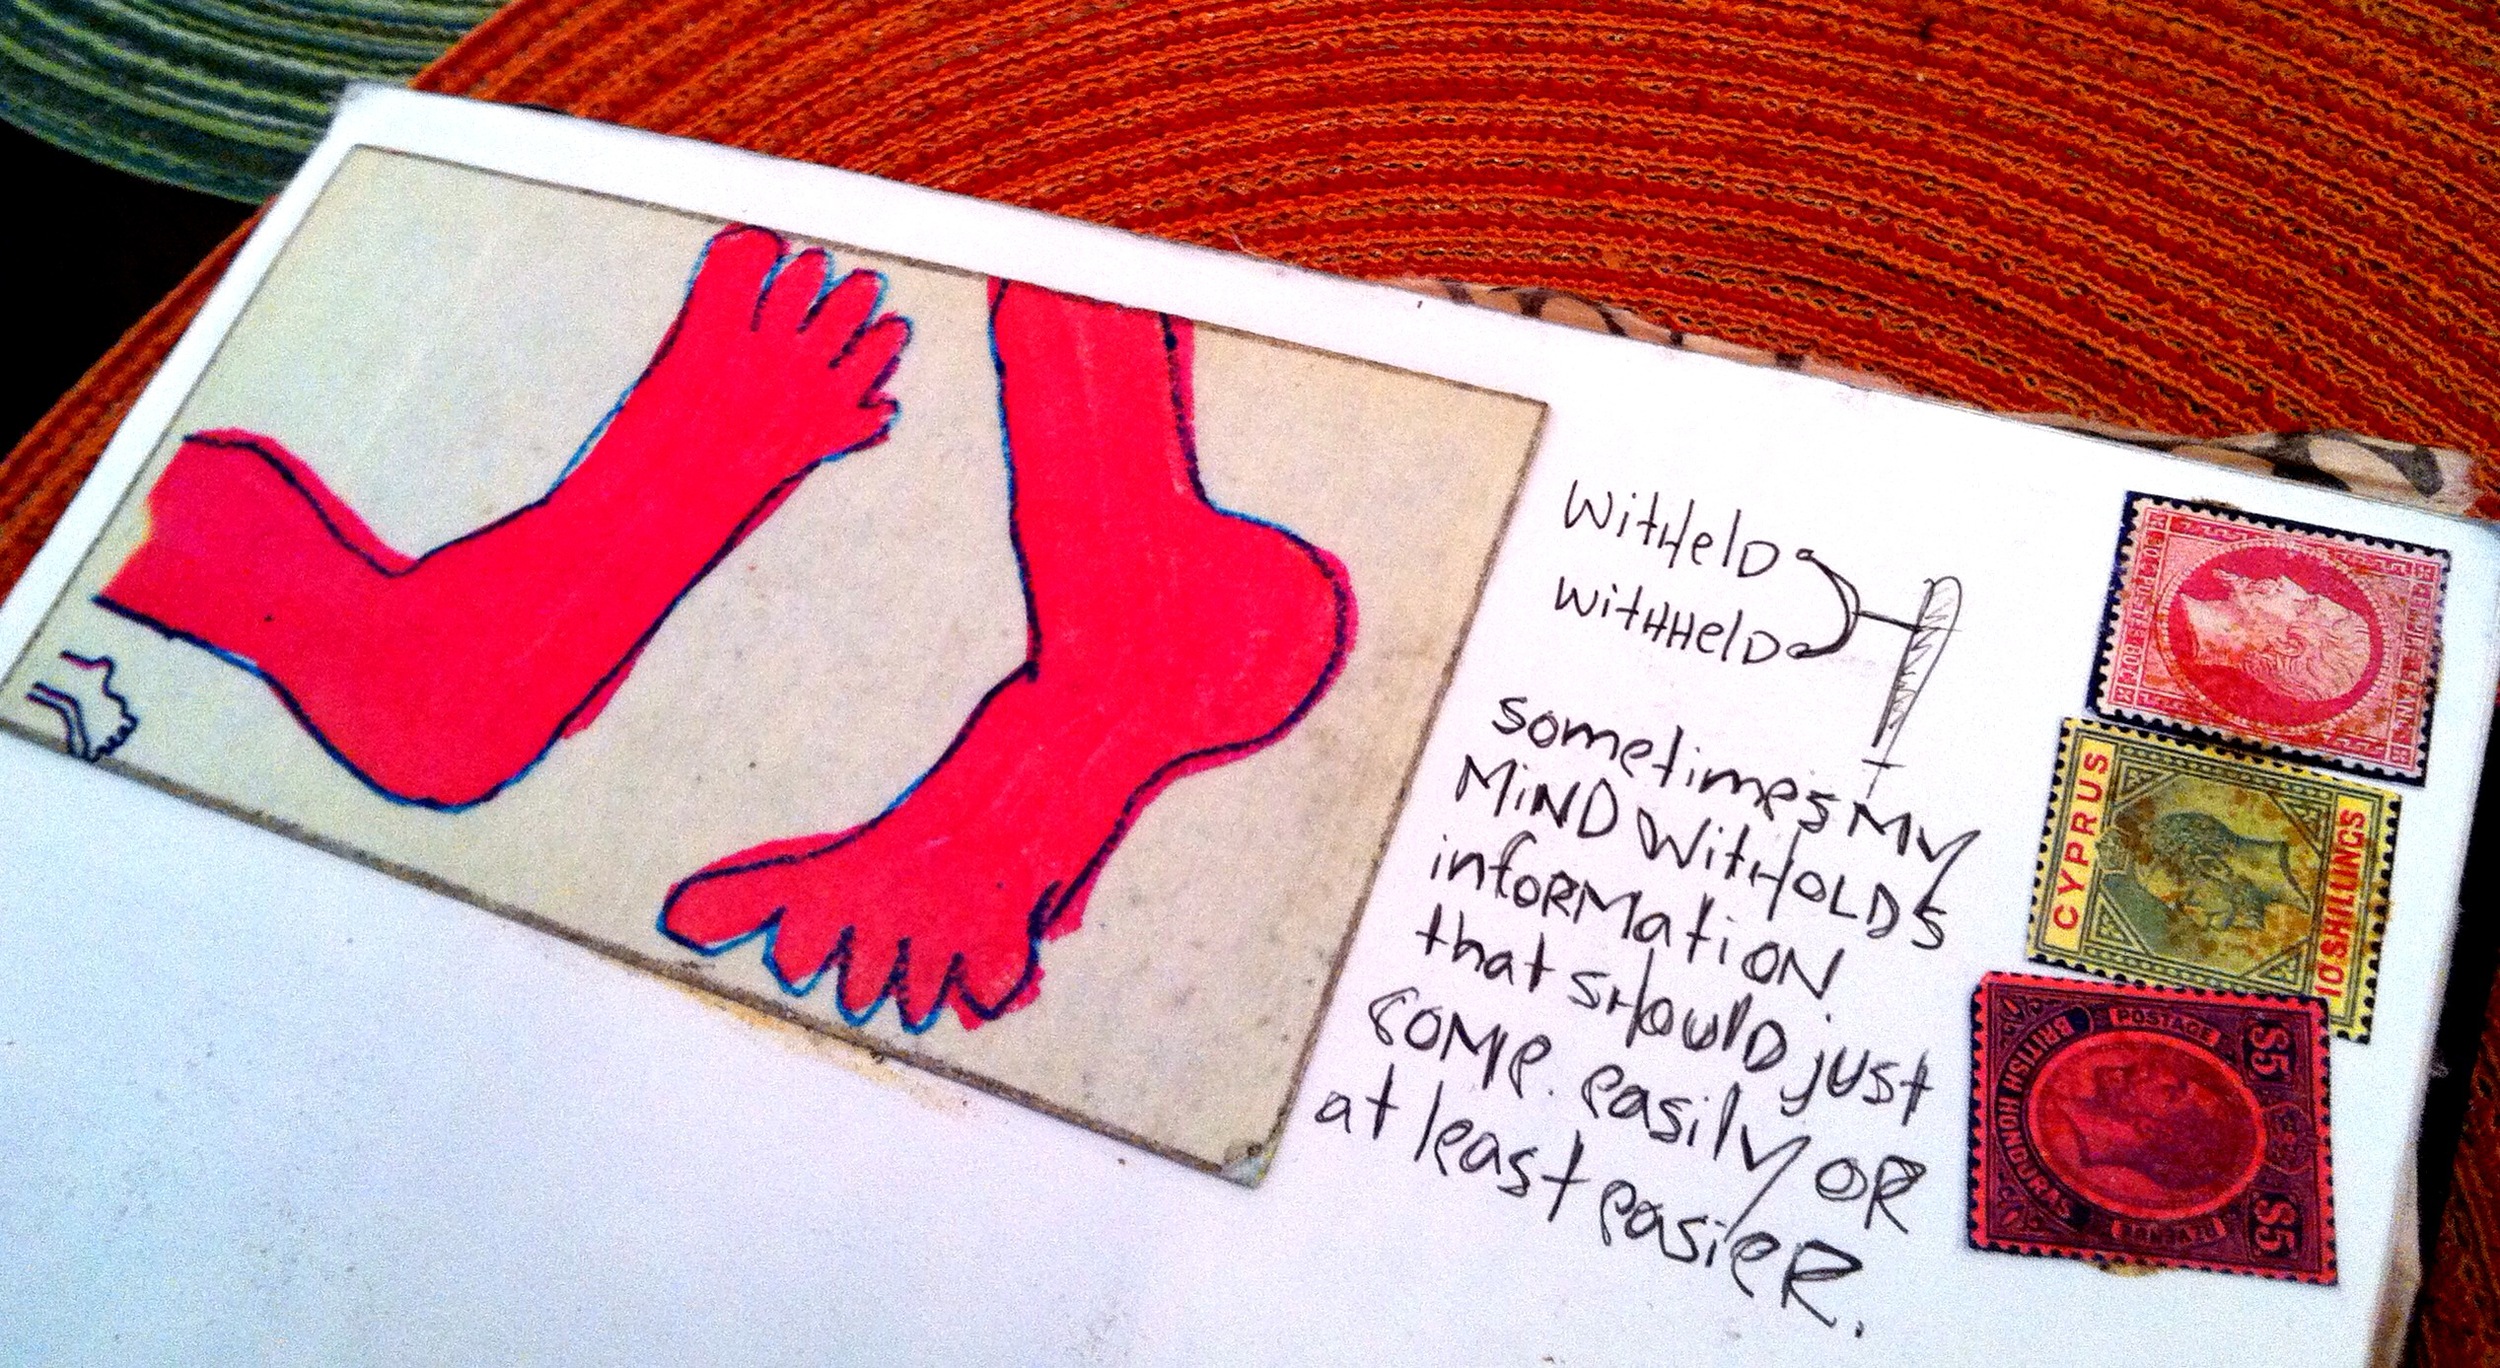 WitHelD
WitHHelD
sometimes MY
MiND WitHOLDS
infORMatiON
that sHould just
COMe. easily OR
at least easieR.
CYPRUS
10 SHILLINGS
BRITISH HONDURAS
POSTAGE
$5
$5
REVENUE